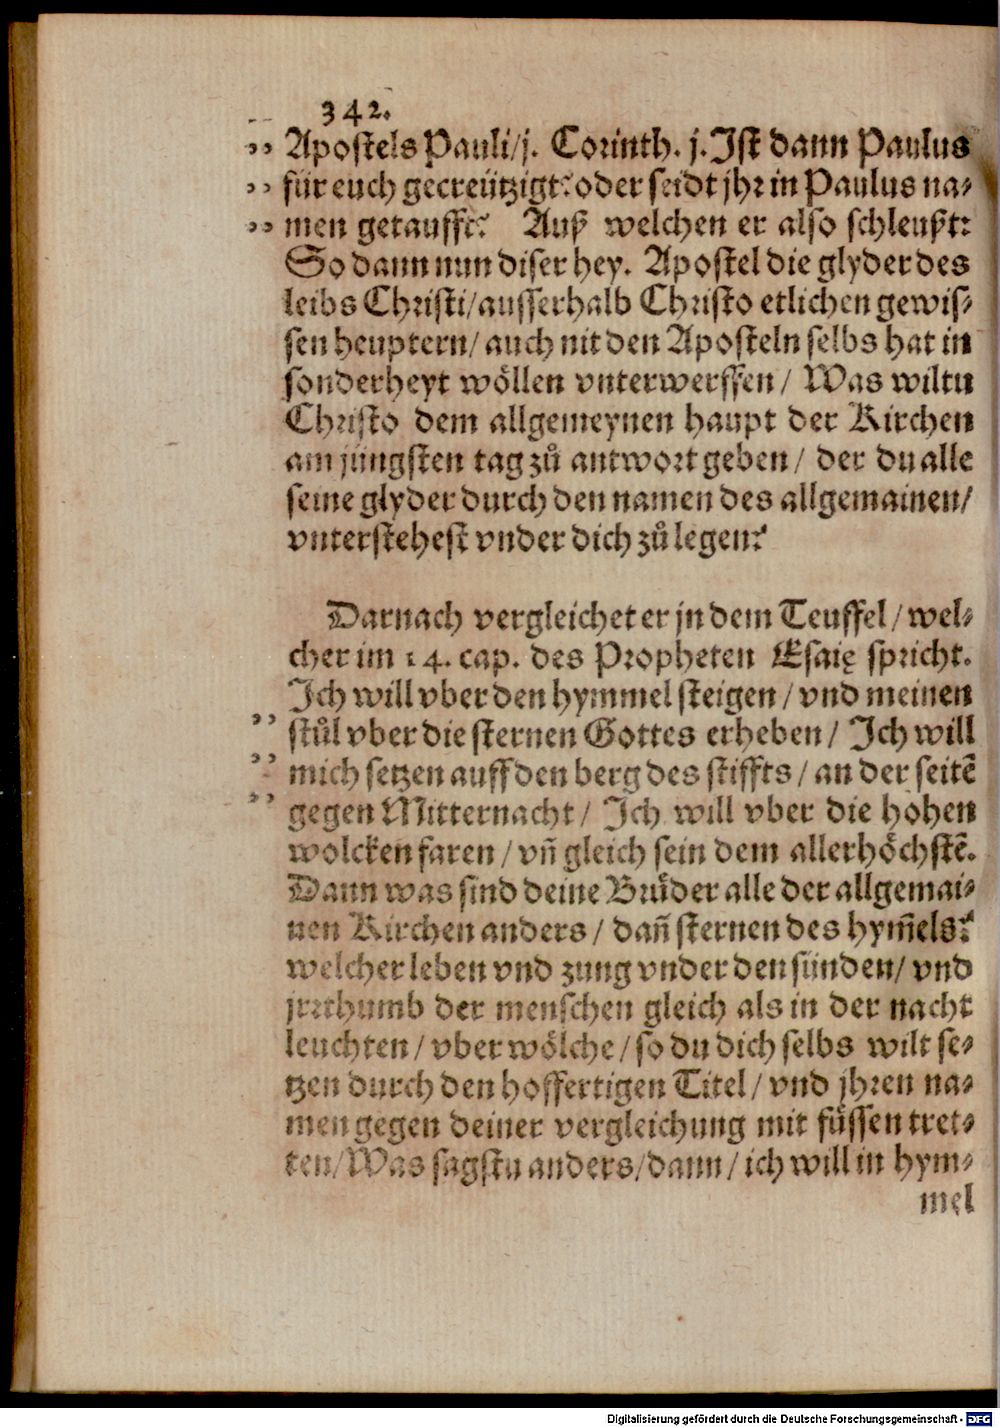 342.
Apostels Pauli/j. Corinth. j. Ist dann Paulus
für euch gecreützigt? oder seidt jhr in Paulus na⸗
men getaufft? Auß welchen er also schleußt:
So dann nun diser hey. Apostel die glyder des
leibs Christi/ausserhalb Christo etlichen gewis⸗
sen heuptern/auch nit den Aposteln selbs hat in
sonderheyt wöllen vnterwerffen/ Was wiltu
Christo dem allgemeynen haupt der Kirchen
am jüngsten tag zů antwort geben/ der du alle
seine glyder durch den namen des allgemainen/
vnterstehest vnder dich zů legen?
Darnach vergleichet er jn dem Teuffel/wel⸗
cher im 14. cap. des Propheten Esaię spricht.
Ich will vber den hymmel steigen/vnd meinen
stůl vber die sternen Gottes erheben/ Ich will
mich setzen auff den berg des stiffts/an der seitẽ
gegen Mitternacht/ Ich will vber die hohen
wolcken faren/vñ gleich sein dem allerhöchstẽ.
Dann was sind deine Brůder alle der allgemai⸗
nen Kirchen anders/ dañ sternen des hym̃els?
welcher leben vnd zung vnder den sünden/ vnd
jrrthumb der menschen gleich als in der nacht
leuchten/vber wölche/so du dich selbs wilt se⸗
tzen durch den hoffertigen Titel/vnd jhren na⸗
men gegen deiner vergleichung mit füssen tret⸗
ten/Was sagstu anders/dann/ich will in hym⸗
mel
Digitalisierung gefördert durch die Deutsche Forschungsgemeinschaft - DFG